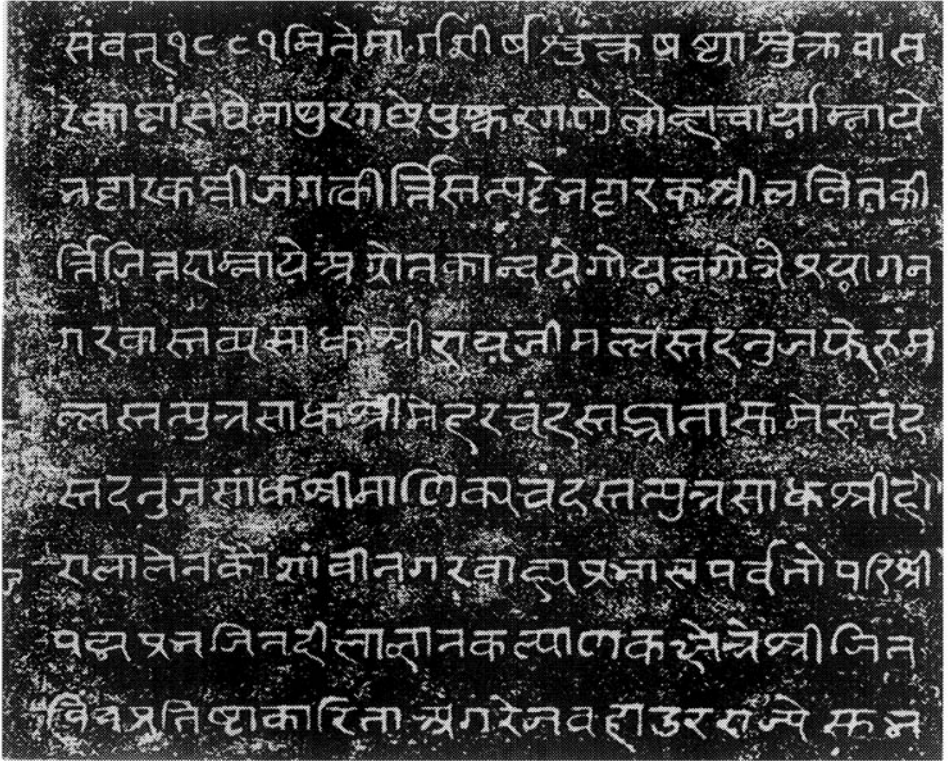 संवत् १८८१ मिते मार्गशीर्षशुक्लषष्ठ्यां शुक्रवास
रे काष्ठासंघे माथुरगच्छे पुष्करगणे लोहाचार्याम्नाये
भट्टारकश्रीजगत्कीर्त्तिस्तत्पट्टे भट्टारकश्रीललितकी
र्त्तिजित्तदाम्नाये अग्रोतकान्वये गोयलगोत्रे प्रयागन
गरवास्तव्यसाधुश्रीरायजीमल्लस्तदनुजफेरुम
ल्लस्तत्पुत्रसाधुश्रीमेहरचंदस्तद्भ्राता सुमेरुचंद
स्तदनुजसाधुश्रीमाणिक्यचंदस्तत्पुत्रसाधुश्रीही
रालालेन कौशांबीनगरबाह्यप्रभासपर्वतोपरि श्री
पद्मप्रभजिनदीक्षाज्ञानकल्याणकक्षेत्रे श्रीजिन
बिंबप्रतिष्ठा कारिता अंगरेजबहादुरराज्ये सुभं